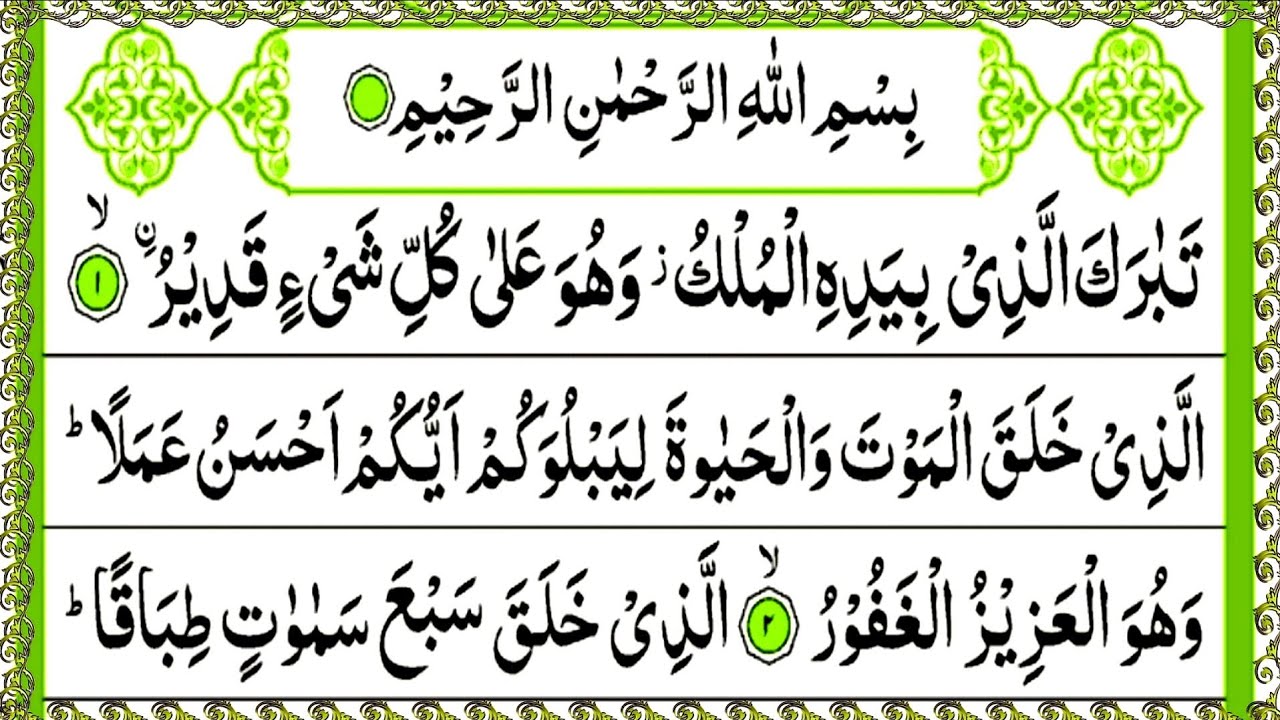 بِسْمِ اللّٰهِ الرَّحْمٰنِ الرَّحِيْمِ
تَبٰرَكَ الَّذِىْ بِيَدِهِ الْمُلْكُ ز وَهُوَ عَلٰى كُلِّ شَىْءٍ قَدِيْرُ ۨ ۙ ١
الَّذِىْ خَلَقَ الْمَوْتَ وَالْحَيٰوةَ لِيَبْلُوَكُمْ اَيُّكُمْ اَحْسَنُ عَمَلًا ؕ
وَهُوَ الْعَزِيْزُ الْغَفُوْرُ ۙ ٢ الَّذِىْ خَلَقَ سَبْعَ سَمٰوٰتٍ طِبَاقًا ؕ